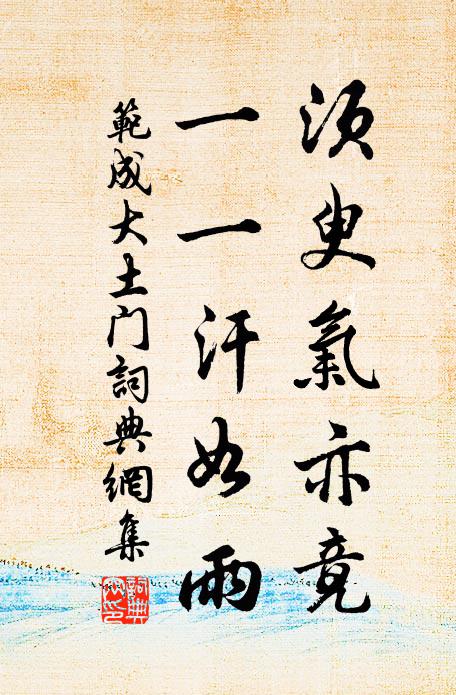 须叟氣亦竟
一一汗如雨
範成大土门詞典網集